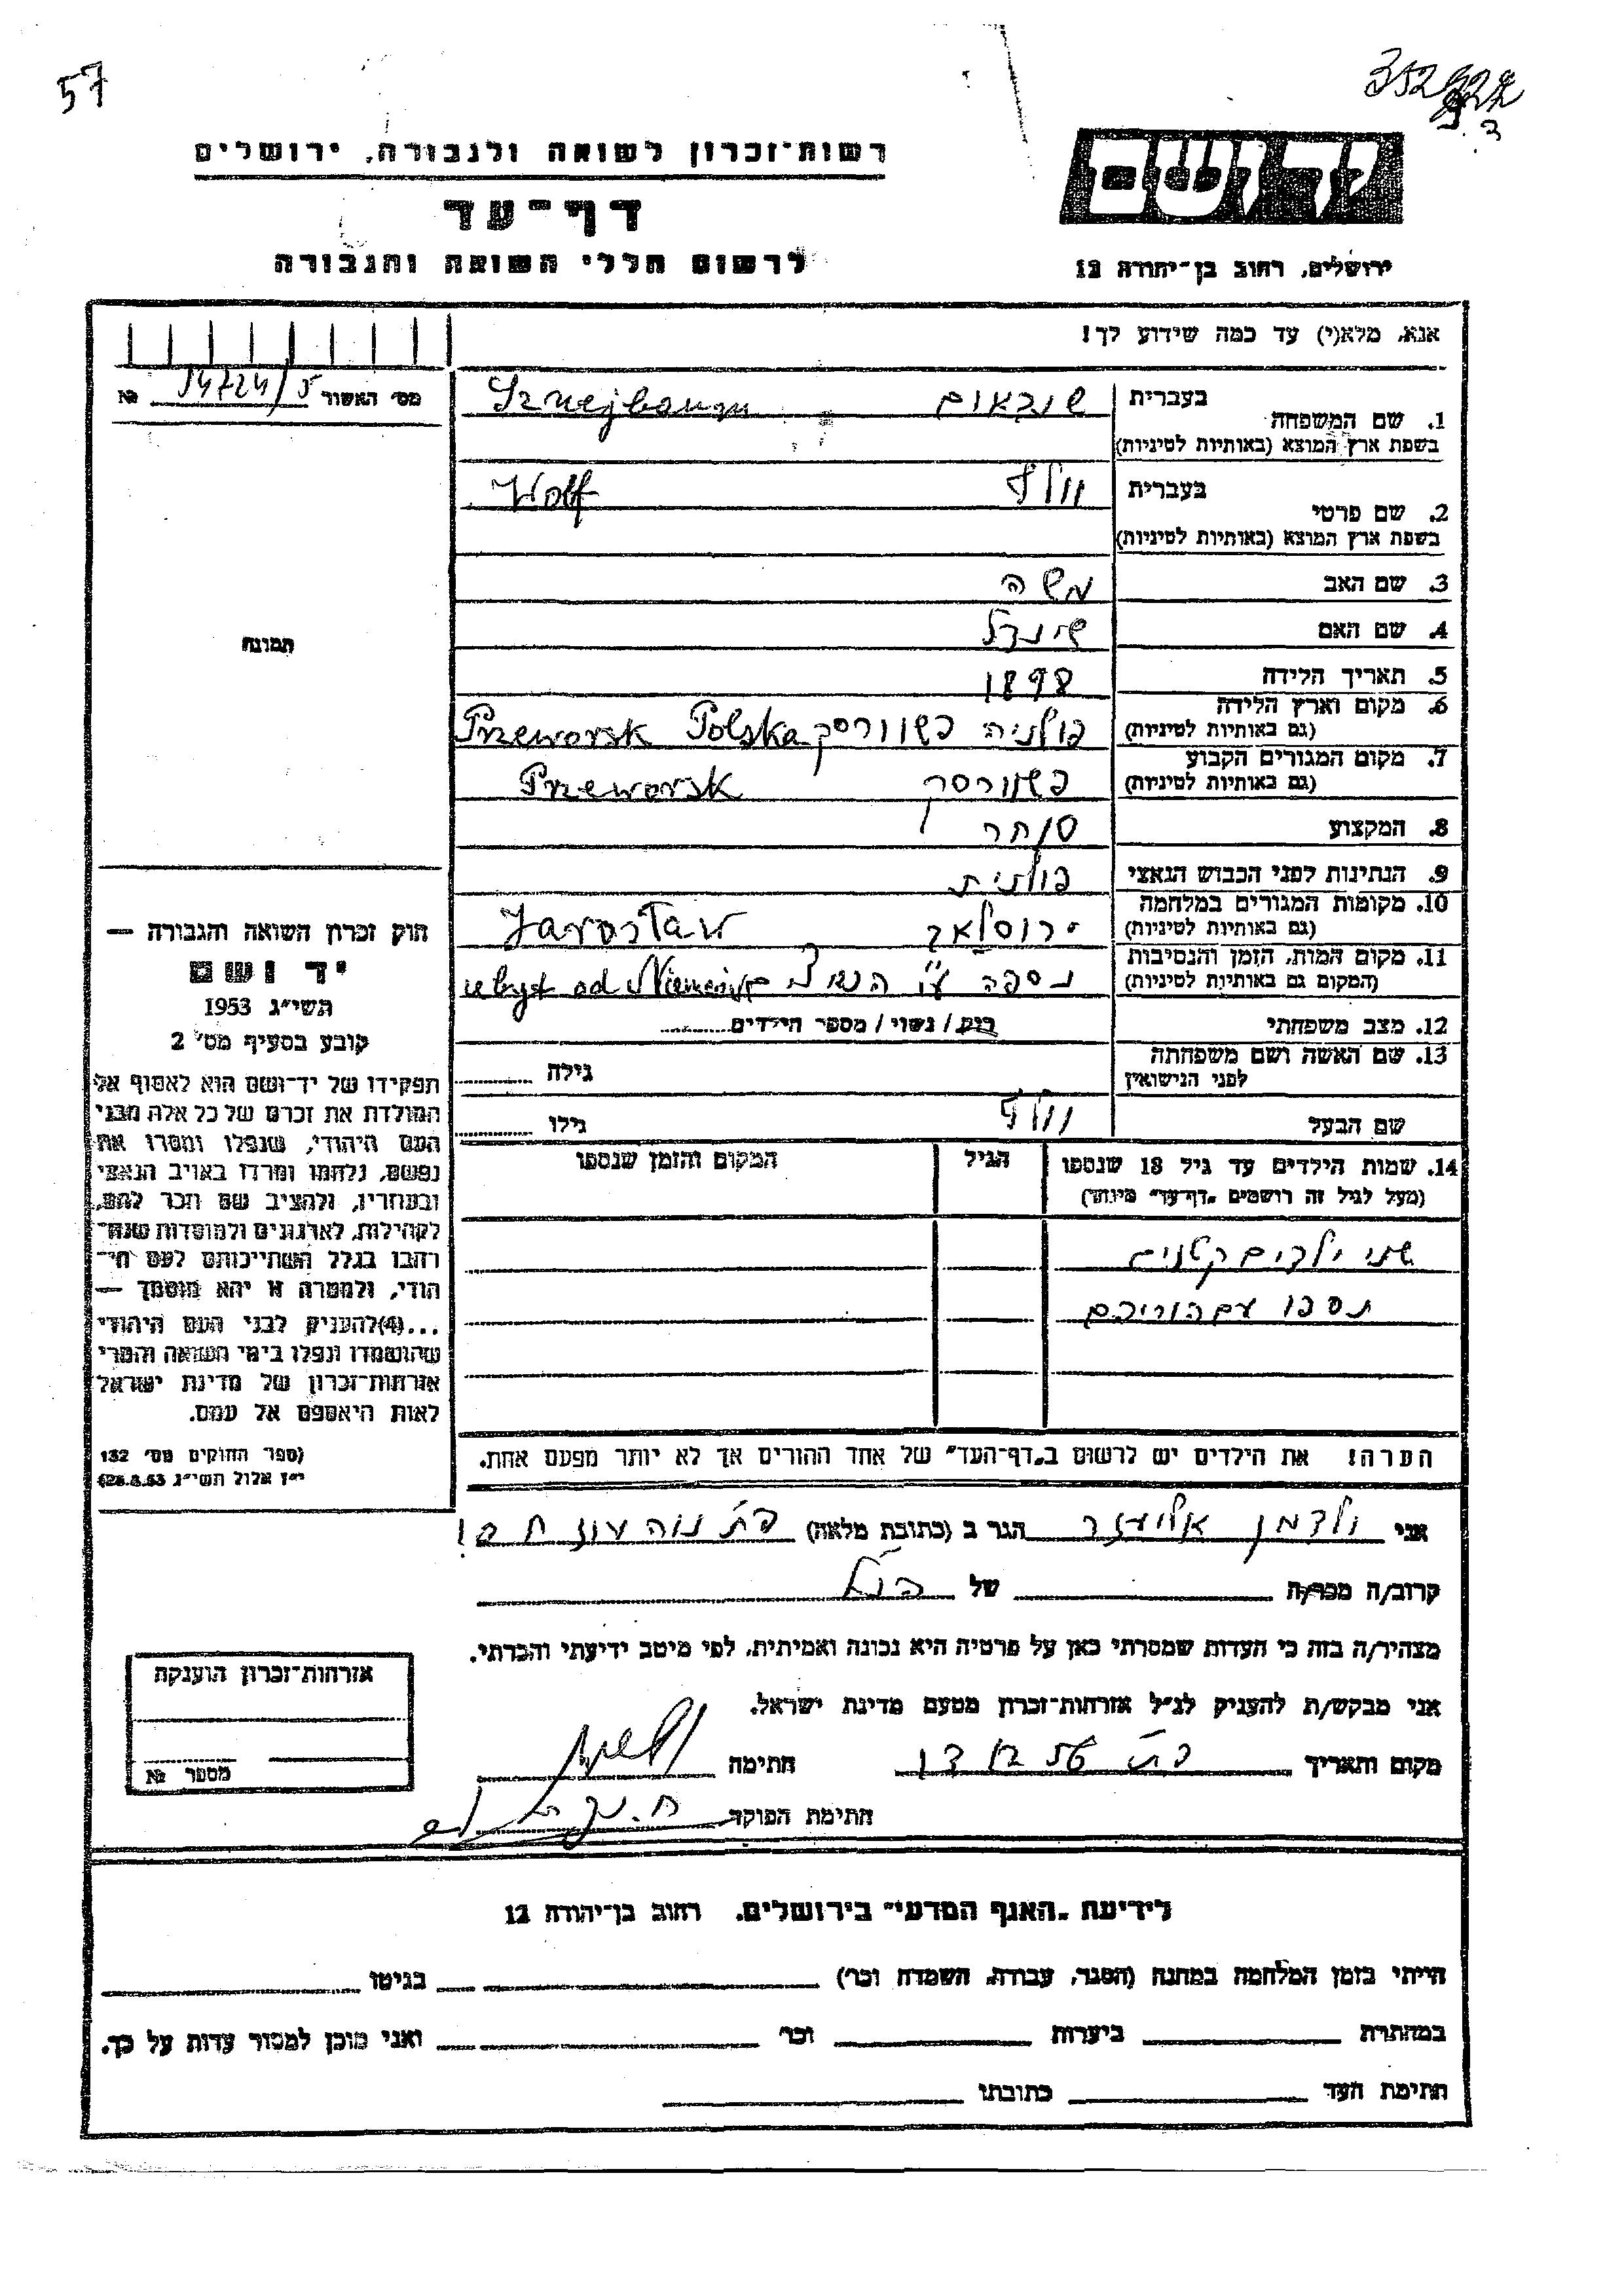 57
רשות-זכרון לשואה ולגבורה, ירושלים
דף-עד
לרשום חללי השואה והגבורה
ירושלים, רחוב בן-יהודה 12
אנא, מלא(י) עד כמה שידוע לך!
מס׳ האשור 14724/5 №
1. שם המשפחה בעברית
Sznejbaum
בשפת ארץ המוצא (באותיות לטיניות)
2. שם פרטי בעברית וולף Wolf
בשפת ארץ המוצא (באותיות לטיניות)
3. שם האב משה
4. שם האם שינדל
5. תאריך הלידה 1898
6. מקום וארץ הלידה (גם באותיות לטיניות) פולניה פשוורסק Przeworsk Polska
7. מקום המגורים הקבוע (גם באותיות לטיניות) פשוורסק Przeworsk
8. המקצוע סוחר
9. הנתינות לפני הכבוש הנאצי פולנית
10. מקומות המגורים במלחמה (גם באותיות לטיניות) ירוסלאב Jarosław
11. מקום המות, הזמן והנסיבות (המקום גם באותיות לטיניות) נספה ע״י od Niemców
12. מצב משפחתי רווק / נשוי / מספר הילדים
13. שם האשה ושם משפחתה לפני הנישואין גילה
שם הבעל וולף גילו
14. שמות הילדים עד גיל 18 שנספו הגיל המקום והזמן שנספו
(מעל לגיל זה רושמים „דף-עד״ מיוחד)
שני ילדים קטנים
נספו עם הוריהם
הערה! את הילדים יש לרשום ב„דף-העד״ של אחד ההורים אך לא יותר מפעם אחת.
תמונה
חוק זכרון השואה והגבורה —
יד ושם
תשי״ג 1953
קובע בסעיף מס׳ 2
תפקידו של יד-ושם הוא לאסוף אל
המולדת את זכרם של כל אלה מבני
העם היהודי, שנפלו ומסרו את
נפשם, נלחמו ומרדו באויב הנאצי
ובעוזריו, ולהציב שם וזכר להם,
לקהילות, לארגונים ולמוסדות שנח־
רבו בגלל השתייכותם לעם הי־
הודי, ולמטרה זו יהא מוסמך —
...(4)להעניק לבני העם היהודי
שהושמדו ונפלו בימי השואה והמרי
אזרחות-זכרון של מדינת ישראל
לאות היאספם אל עמם.
(ספר החוקים מס׳ 132
י״ז אלול תשי״ג 28.8.53)
אני ולדמן אליעזר הגר ב (כתובת מלאה)
קרוב/ה מכר/ה של
מצהיר/ה בזה כי העדות שמסרתי כאן על פרטיה היא נכונה ואמיתית, לפי מיטב ידיעתי והכרתי.
אני מבקש/ת להעניק לנ״ל אזרחות-זכרון מטעם מדינת ישראל.
מקום ותאריך חתימה
חתימת הפוקד
אזרחות-זכרון הוענקה
מספר №
לידיעת „האגף המדעי״ בירושלים, רחוב בן-יהודה 12
הייתי בזמן המלחמה במחנה (הסגר, עבודה, השמדה וכו׳) בגיטו
במחתרת ביערות וכו׳ ואני מוכן למסור עדות על כך.
חתימת העד כתובתו